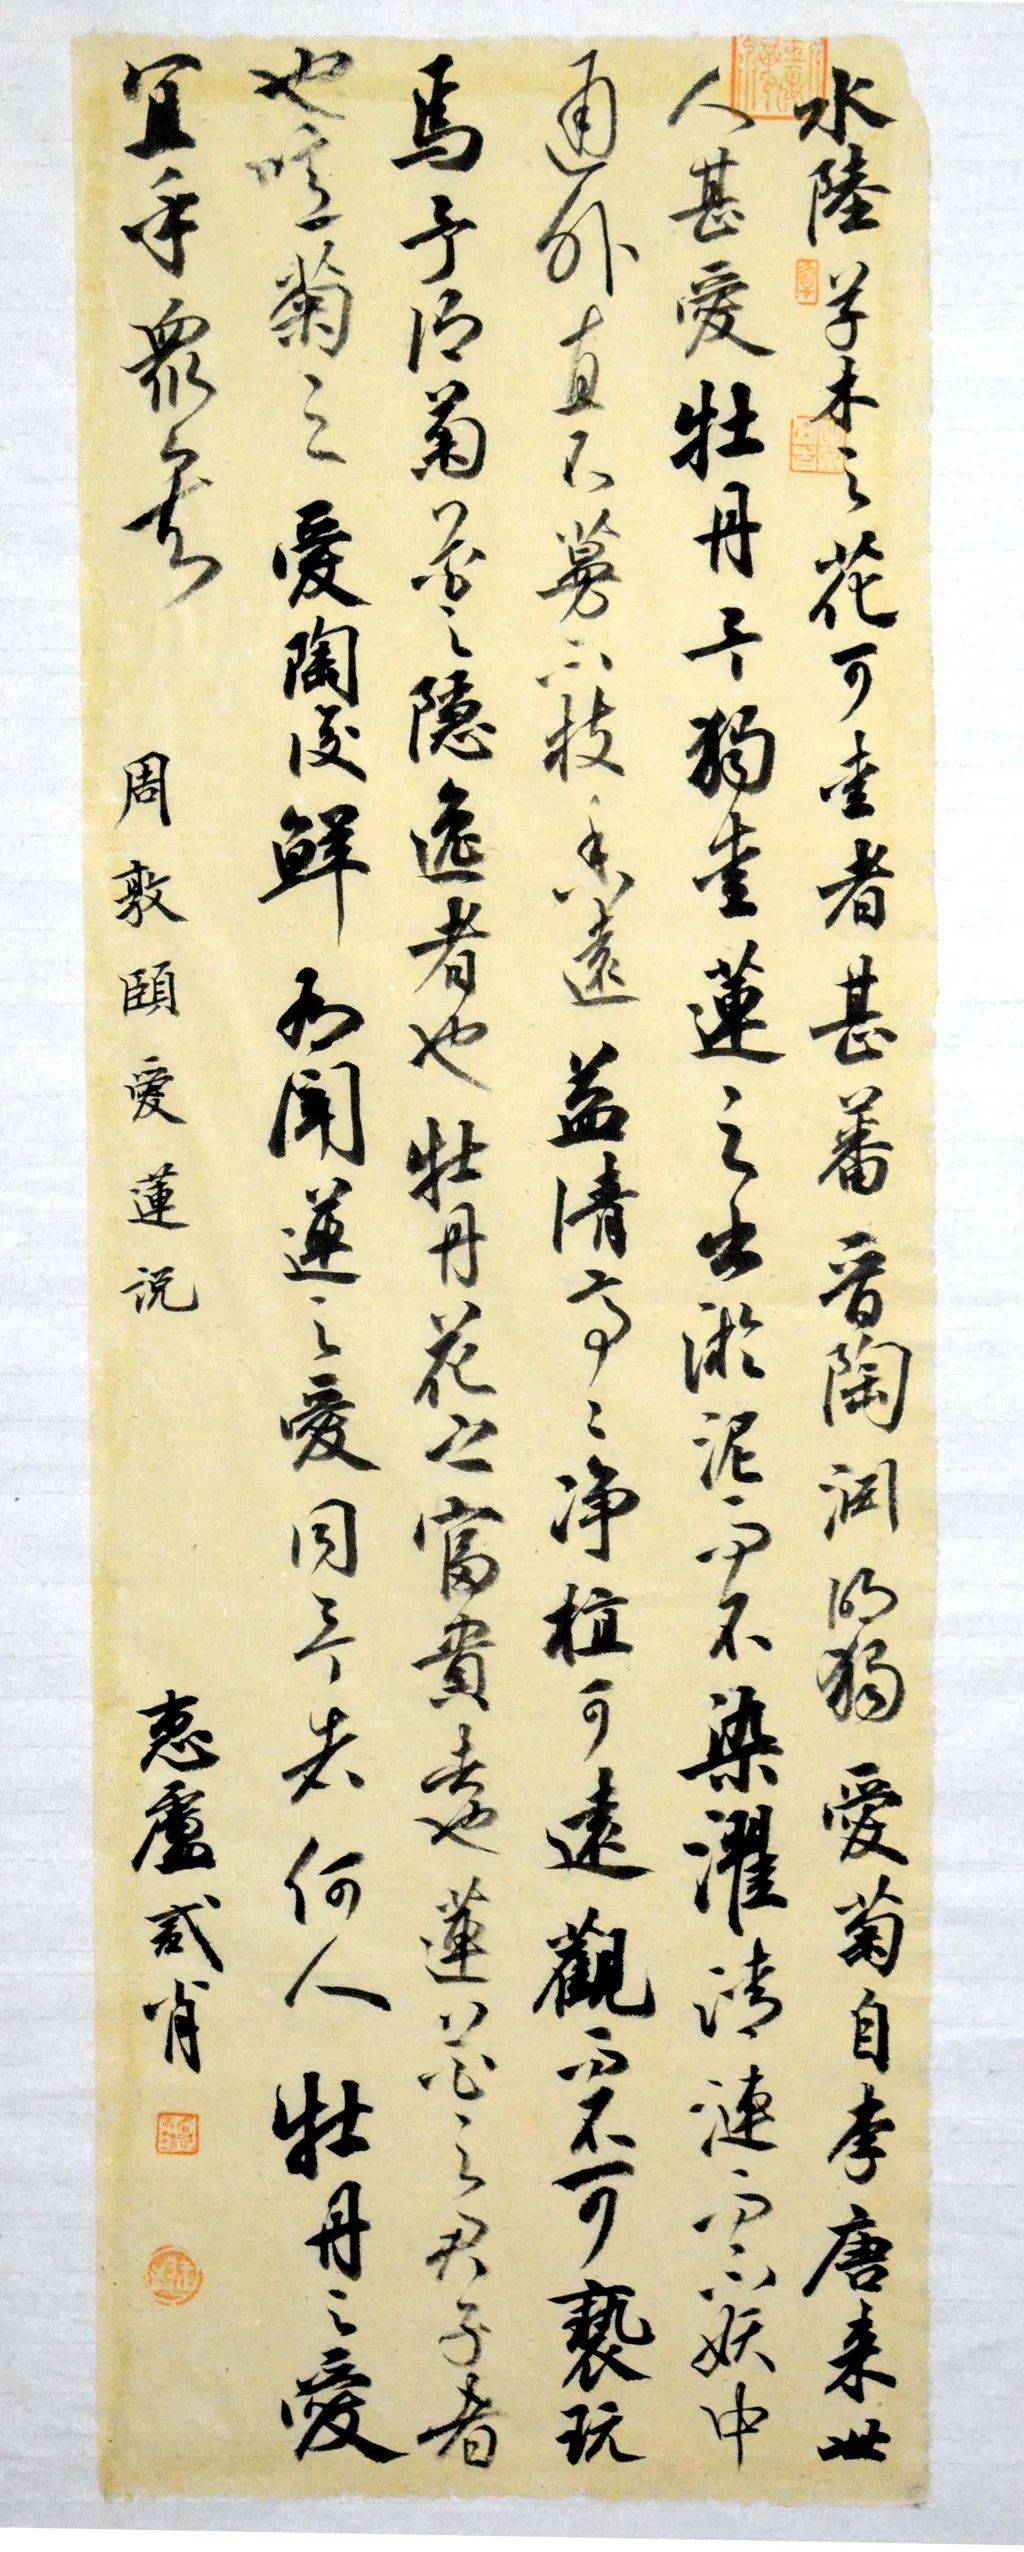 水陸草木之花可愛者甚蕃晉陶淵明獨愛菊自李唐来世
人甚愛牡丹予獨愛蓮之出淤泥而不染濯清漣而不妖中
通外直不蔓不枝香遠益清亭〻净植可遠觀而不可褻玩
焉予謂菊花之隱逸者也牡丹花之富貴者也蓮花之君子者
也噫菊之愛陶後鮮有聞蓮之愛同予者何人牡丹之愛
宜乎衆矣
周敦頤爱蓮说